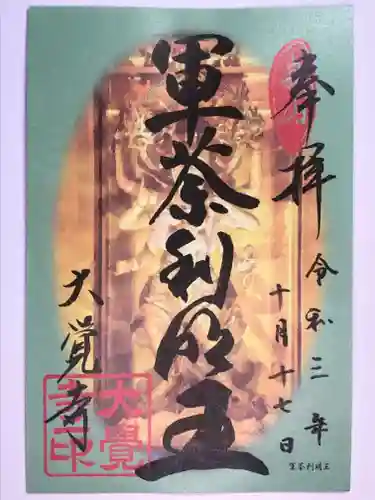 奉拝
令和三年
十月十七日
軍荼利明王
大覺寺
大覺
寺印
軍荼利明王